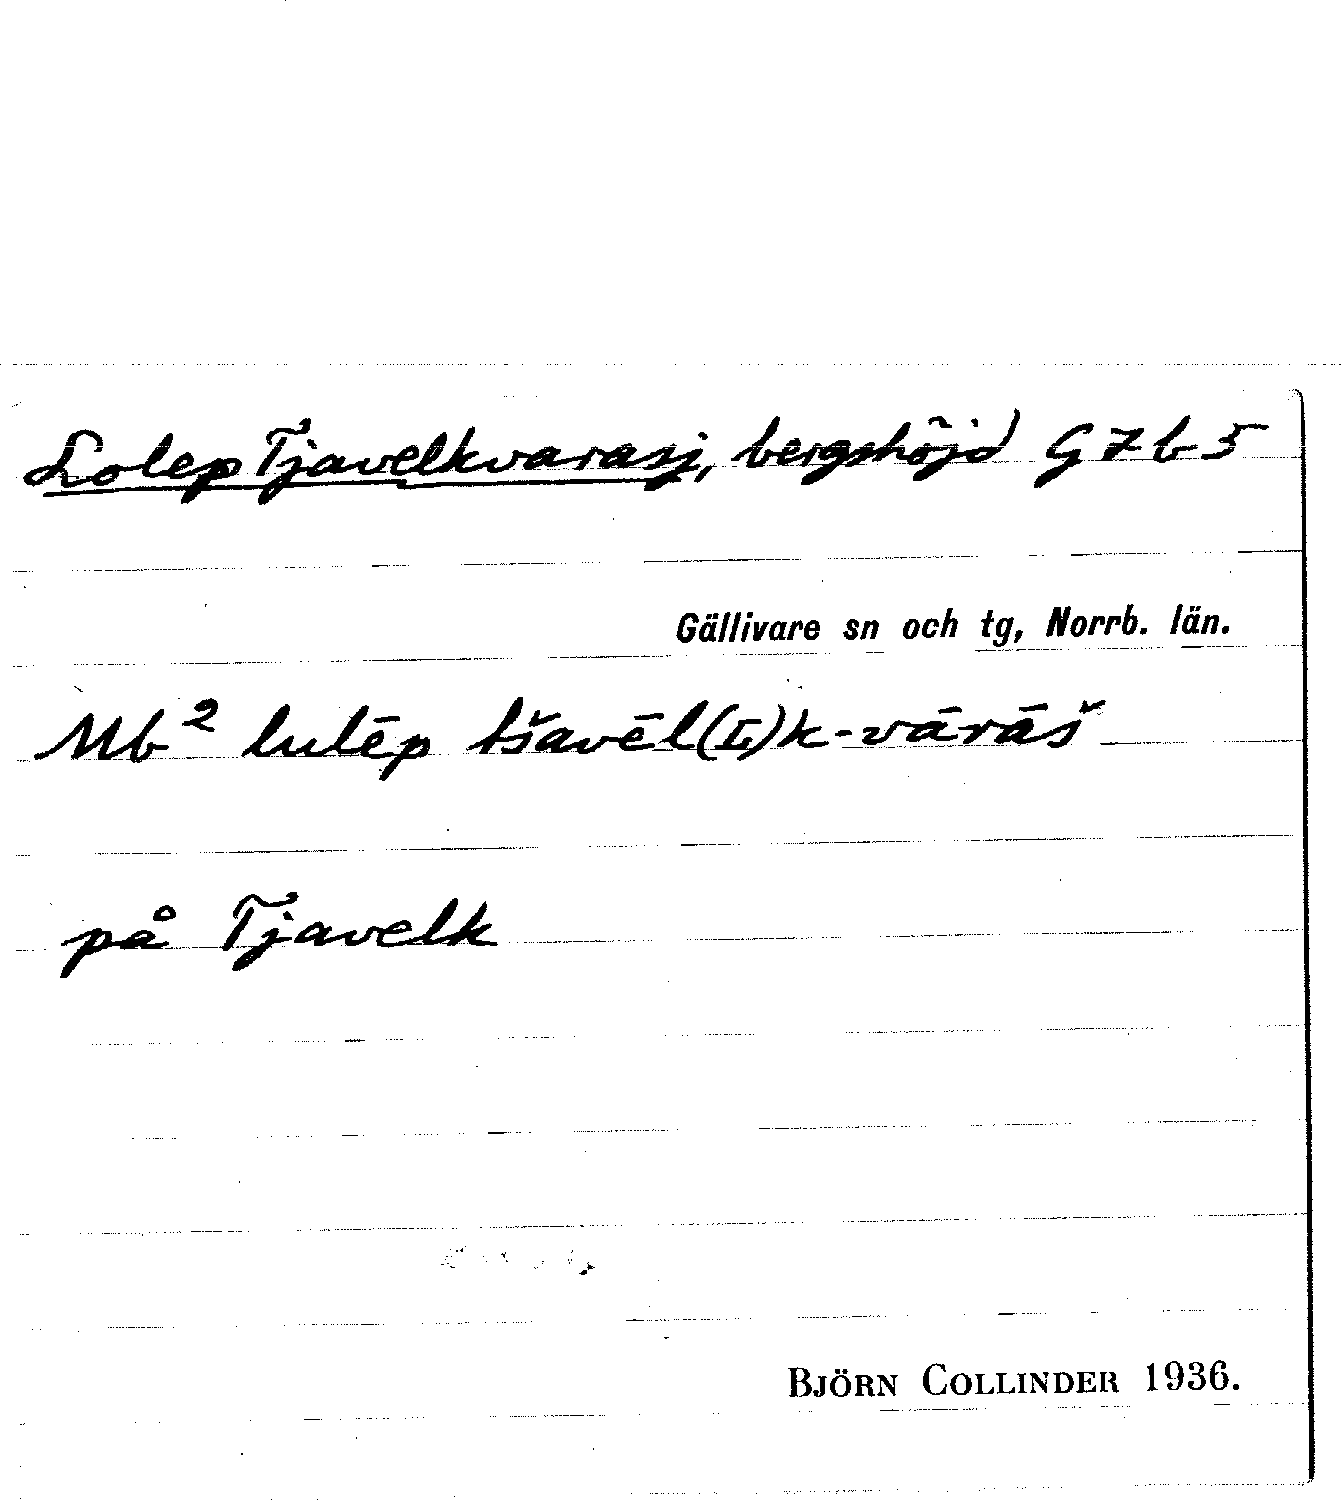 Lolep Tjavelkvarasj, bergshöjd G 7 b 5
Gällivare sn och tg, Norrb. län.
Mb² lulēp tšavēl(ʟ)k-vārāš
på Tjavelk
BJÖRN COLLINDER 1936.